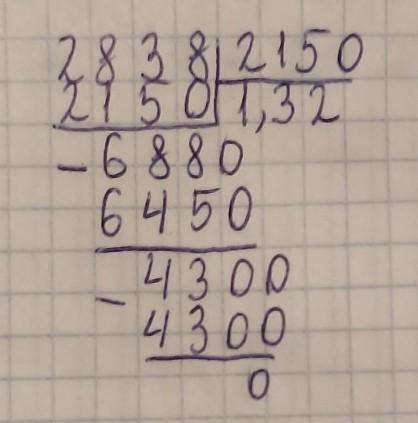 2838 2150
2150 1,32
- 6880
6450
- 4300
4300
0